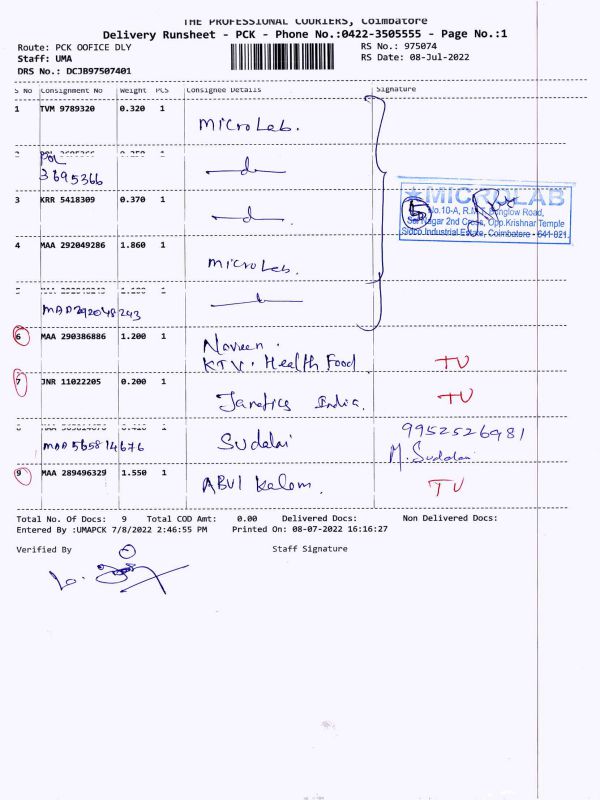 THE PROFESSIONAL COURIERS, Coimbatore
Delivery Runsheet - PCK - Phone No.:0422-3505555 - Page No.:1
Route: PCK OOFICE DLY
RS No.: 975074
Staff: UMA
RS Date: 08-Jul-2022
DRS No.: DCJB97507401
S No Consignment No Weight PCS Consignee Details Signature
1 TVM 9789320 0.320 1 Micro Lab.
POL
3695366
3 KRR 5418309 0.370 1
4 MAA 292049286 1.860 1 Micro Lab.
MAA292048243
6 MAA 290386886 1.200 1 Naveen.
KTV. Health Food TU
7 JNR 11022205 0.200 1 Janatics India. TU
MAA 565814676 Sudalai 9952526981
M. Sudalai
9 MAA 289496329 1.550 1 ABUl Kalam. TU
MICROLAB
5
No.10-A, R.M.T. Bunglow Road,
Sai Nagar 2nd Cross, Opp.Krishnar Temple
Sidco Industrial Estate, Coimbatore - 641 021.
Total No. Of Docs: 9 Total COD Amt: 0.00 Delivered Docs: Non Delivered Docs:
Entered By :UMAPCK 7/8/2022 2:46:55 PM Printed On: 08-07-2022 16:16:27
Verified By Staff Signature